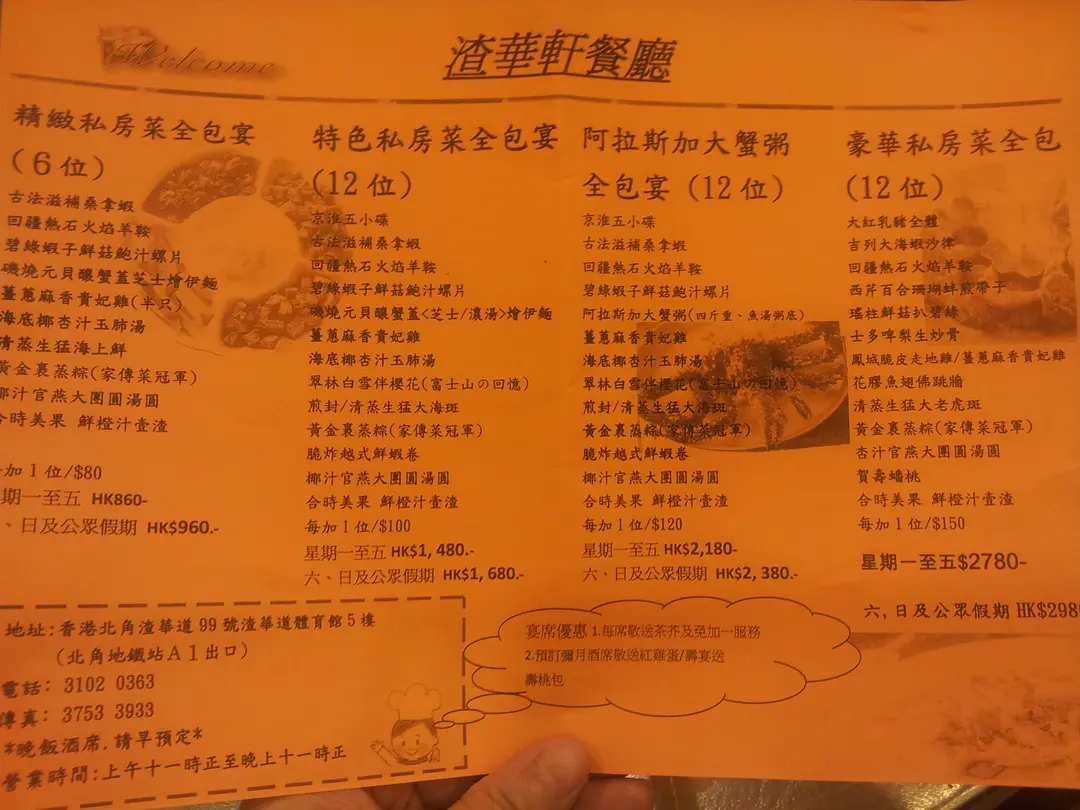 Welcome
渣華軒餐廳
精緻私房菜全包宴
(6位)
古法滋補桑拿蝦
回疆熱石火焰羊鞍
碧綠蝦子鮮菇鮑汁螺片
磯燒元貝釀蟹蓋芝士燴伊麵
薑蔥麻香貴妃雞(半只)
海底椰杏汁玉肺湯
清蒸生猛海上鮮
黃金裹蒸粽(家傳菜冠軍)
椰汁官燕大團圓湯圓
合時美果 鮮橙汁壹渣
加1位/$80
期一至五 HK860-
、日及公眾假期 HK$960.-
特色私房菜全包宴
(12位)
京淮五小碟
古法滋補桑拿蝦
回疆熱石火焰羊鞍
碧綠蝦子鮮菇鮑汁螺片
磯燒元貝釀蟹蓋<芝士/濃湯>燴伊麵
薑蔥麻香貴妃雞
海底椰杏汁玉肺湯
翠林白雪伴櫻花(富士山の回憶)
煎封/清蒸生猛大海斑
黃金裹蒸粽(家傳菜冠軍)
脆炸越式鮮蝦卷
椰汁官燕大團圓湯圓
合時美果 鮮橙汁壹渣
每加1位/$100
星期一至五 HK$1,480.-
六、日及公眾假期 HK$1,680.-
阿拉斯加大蟹粥
全包宴(12位)
京淮五小碟
古法滋補桑拿蝦
回疆熱石火焰羊鞍
碧綠蝦子鮮菇鮑汁螺片
阿拉斯加大蟹粥(四斤重、魚湯粥底)
薑蔥麻香貴妃雞
海底椰杏汁玉肺湯
翠林白雪伴櫻花(富士山の回憶)
煎封/清蒸生猛大海斑
黃金裹蒸粽(家傳菜冠軍)
脆炸越式鮮蝦卷
椰汁官燕大團圓湯圓
合時美果 鮮橙汁壹渣
每加1位/$120
星期一至五 HK$2,180-
六、日及公眾假期 HK$2,380.-
豪華私房菜全包
(12位)
大紅乳豬全體
吉列大海蝦沙律
回疆熱石火焰羊鞍
西芹百合珊瑚蚌煎帶子
瑤柱鮮菇扒碧綠
士多啤梨生炒骨
鳳城脆皮走地雞/薑蔥麻香貴妃雞
花膠魚翅佛跳牆
清蒸生猛大老虎斑
黃金裹蒸粽(家傳菜冠軍)
杏汁官燕大團圓湯圓
賀壽蟠桃
合時美果 鮮橙汁壹渣
每加1位/$150
星期一至五$2780-
六,日及公眾假期 HK$298
地址:香港北角渣華道99號渣華道體育館5樓
(北角地鐵站A1出口)
電話: 3102 0363
傳真: 3753 3933
*晚飯酒席.請早預定*
營業時間:上午十一時正至晚上十一時正
宴席優惠 1.每席敬送茶芥及免加一服務
2.預訂彌月酒席敬送紅雞蛋/壽宴送
壽桃包